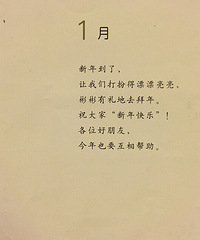 1月
新年到了，
让我们打扮得漂漂亮亮，
彬彬有礼地去拜年。
祝大家“新年快乐”！
各位好朋友，
今年也要互相帮助。